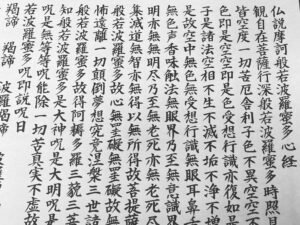 仏説摩訶般若波羅蜜多心経
観自在菩薩行深般若波羅蜜多時照見
皆空度一切苦厄舎利子色不異空空不
色即是空空即是色受想行識亦復如是
子是諸法空相不生不滅不垢不浄不増
是故空中無色無受想行識無眼耳鼻
無色声香味触法無眼界乃至無意識界
明亦無無明尽乃至無老死亦無老死尽
集滅道無智亦無得以無所得故菩提薩
般若波羅蜜多故心無罣礙無罣礙故無
怖遠離一切顛倒夢想究竟涅槃三世諸
般若波羅蜜多故得阿耨多羅三藐三菩
知般若波羅蜜多是大神呪是大明呪是
呪是無等等呪能除一切苦真実不虚故
般若波羅蜜多呪即説呪曰
羯諦 羯諦 波羅羯諦